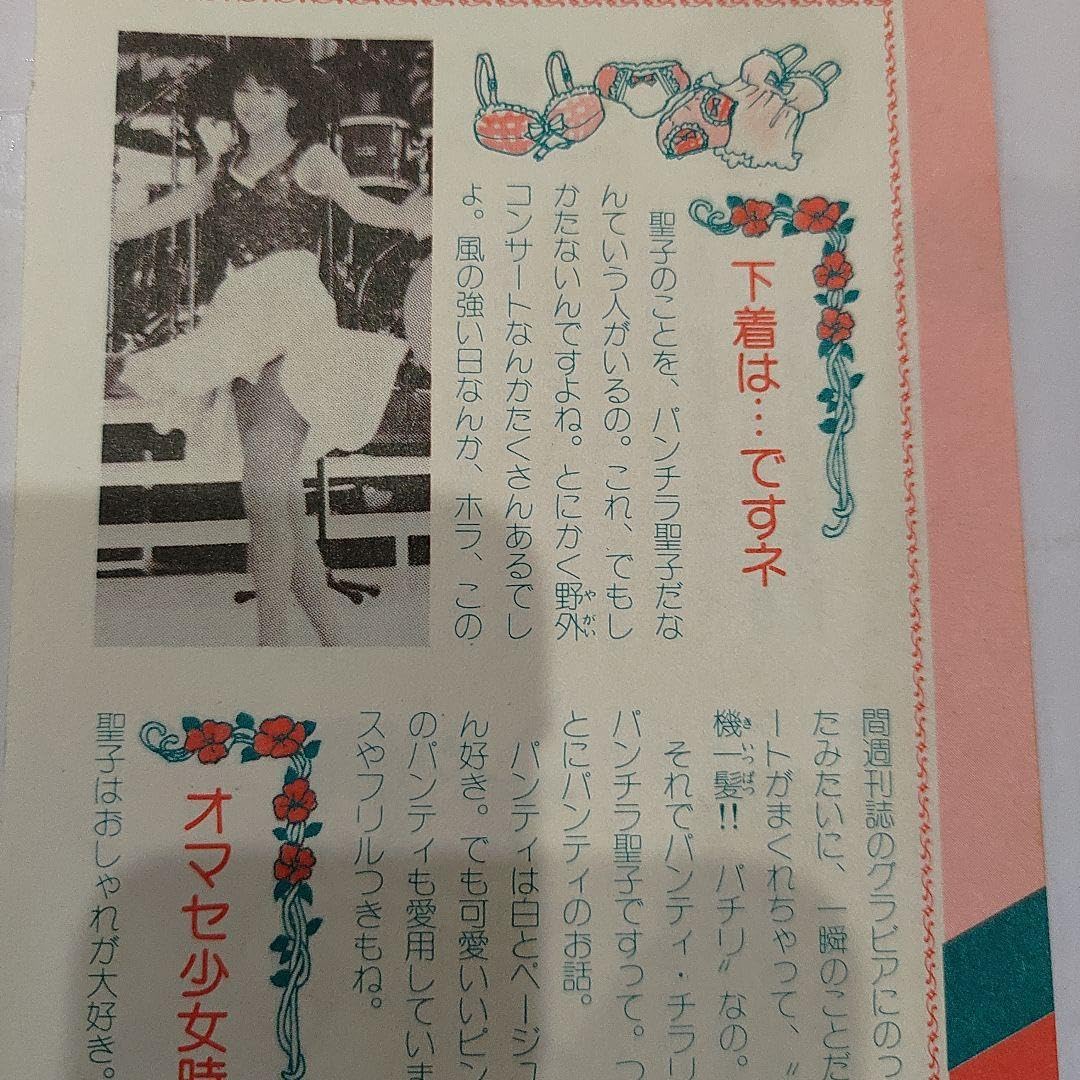 下着は…ですネ
聖子のことを、パンチラ聖子だな
んていう人がいるの。これ、でもし
かたないんですよね。とにかく野外
やがい
コンサートなんかたくさんあるでし
よ。風の強い日なんか、ホラ、この
間週刊誌のグラビアにのっ
たみたいに、一瞬のことだ
ートがまくれちゃって、〝
機一髪!! パチリ〟なの。
きいっぱつ
それでパンティ・チラリ
パンチラ聖子ですって。つ
とにパンティのお話。
パンティは白とベージュ
ん好き。でも可愛いいピン
のパンティも愛用していま
スやフリルつきもね。
オマセ少女時
聖子はおしゃれが大好き。